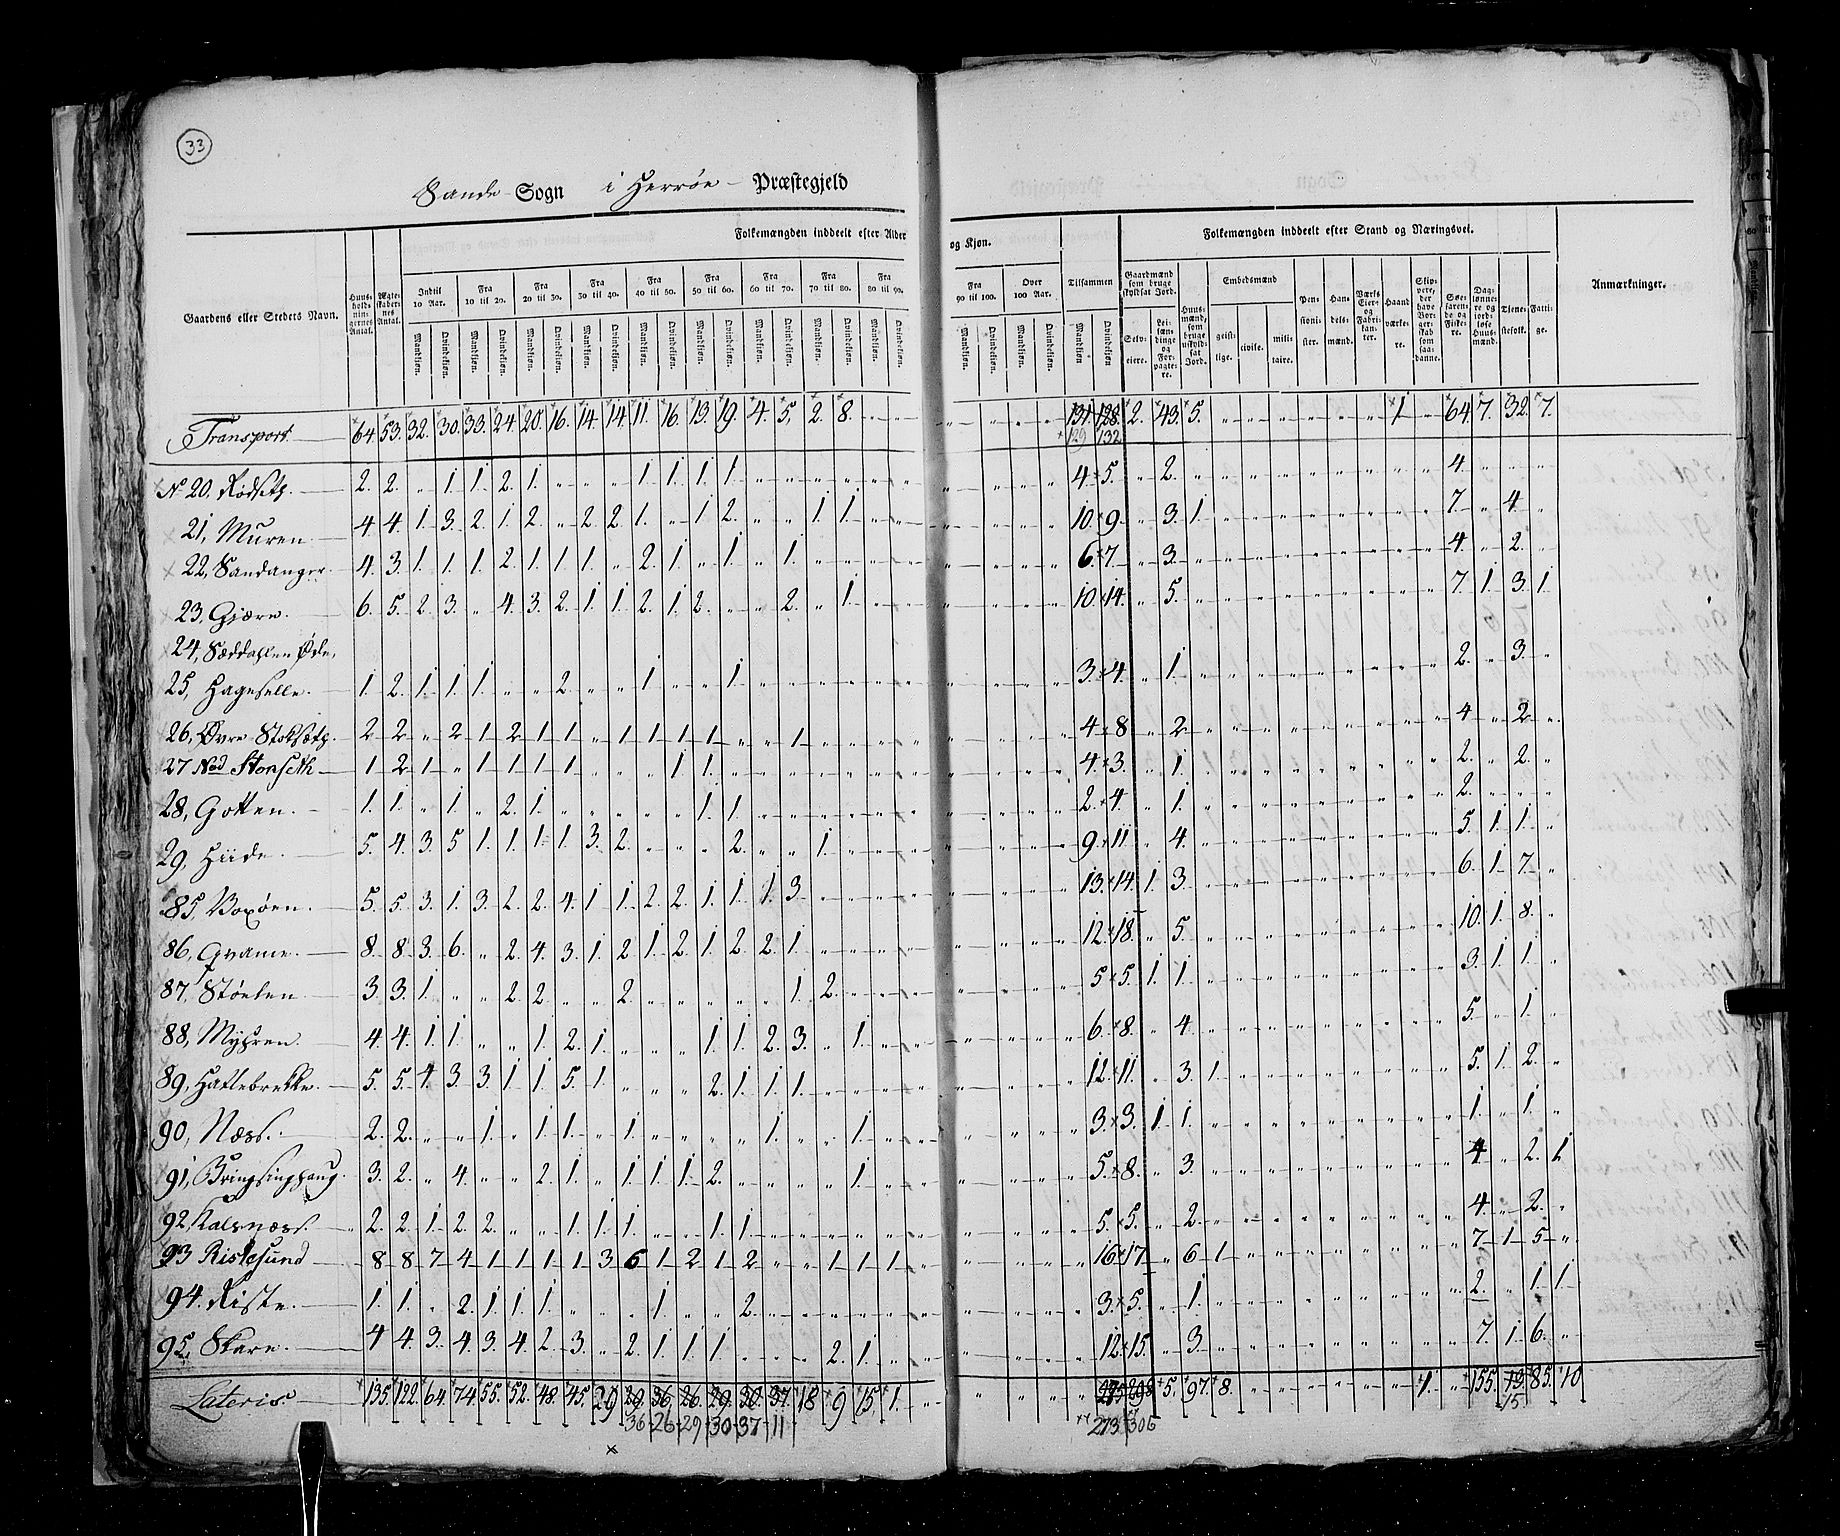 33
Sande Sogn i Herröe Præstegjeld
Folkemængden inddeelt efter Alder og Kjøn. Folkemængden inddeelt efter Stand og Næringsvei.
Gaardens eller Stedets Navn. Huusholdningernes Antal. Ægteskabernes Antal. Indtil 10 Aar. Fra 10 til 20. Fra 20 til 30. Fra 30 til 40. Fra 40 til 50. Fra 50 til 60. Fra 60 til 70. Fra 70 til 80. Fra 80 til 90. Fra 90 til 100. Over 100 Aar. Tilsammen Gaardmænd som bruge skyldsat Jord. Huusmænd som bruge uskyldsat Jord. Embedsmænd Pensionister. Handelsmænd. Værks Eier og Fabrikanter. Haandværkere. Skippere, der have Borgerskab som saadanne. Søefarende og Fiskere. Daglønnere og jordløse Huusmænd. Tjenestefolk. Fattige. Anmærkninger.
Mandkjøn. Qvindekjøn. Selveiere. Leilændinge og Forpagtere. geistlige. civile. militaire.
Transport 64. 53. 32. 30. 33. 24. 20. 16. 14. 14. 11. 16. 13. 19. 4. 5. 2. 8. „ „ „ „ „ „ 131. 128. 2. 43. 5. „ „ „ „ „ „ 1 „ 64. 7. 32. 7.
129 132
No 20. Rödseth. 2. 2. „ 1. 1. 2. 1. „ „ „ 1. 1. 1. 1. „ „ „ „ „ „ 4. 5. „ 2. „ 4. „ „ „
21, Muren 4. 4. 1. 3. 2. 1. 2. „ 2. 2. 1. „ 1. 2. „ „ 1. 1. „ „ 10. 9. „ 3. 1. 7. „ 4. „
22, Sandanger. 4. 3. 1. 1. 1. 2. 1. 1. 1. „ 2. 1. „ 1. „ 1. „ „ „ „ 6. 7. „ 3. „ 4. „ 2. „
23, Gjære. 6. 5. 2. 3. „ 4. 3. 2. 1. 1. 2. 1. 2. „ „ 2. „ 1. „ „ 10. 14. „ 5. „ 7. 1. 3. 1.
24, Sæddahlen Øde.
25, Hageselle. 1. 2. 1. 1. 1. „ „ 2. „ „ 1. „ „ 1. „ „ „ „ „ „ 3. 4. „ 1. „ 2. „ 3. „
26, Øvre Stoksæth. 2 2 „ 2 1 2 1 1 „ 1 1 1 1 „ „ 1 „ „ „ „ 4. 8 „ 2. „ 4 „ 2 „
27 Ned Stonseth 1 2 1 „ 1 1 1 1 „ „ „ 1 1. „ „ „ „ „ „ „ 4. 3. „ 1. „ 2. „ 2. „
28, Gotten. 1. 1. „ 1. „ 2. 1. „ „ „ „ „ 1. 1. „ „ „ „ „ „ 2. 4. „ 1. „ 2. „ „ „
29, Hiide. 5. 4. 3. 5 1. 1. 1. 1 3. 2. „ „ „ 2. „ „ 1. „ „ „ 9. 11 „ 4. „ 5. 1. 1. „
85, Voxöen. 5. 5. 3. 1. 3. 2. 2. 4. 1 1. 2. 2. 1. 1. 1. 3. „ „ „ „ 13. 14. 1. 3. „ 6. 1. 7. „
86, Qvamme. 8. 8. 3. 6. „ 2. 4. 3. 1. 2 1. 2. 1. 2. 2. 1. „ „ „ „ 12. 18. „ 5. „ 10. 1. 8. „
87, Stöelen 3. 3. 1. „ „ 2. 2. „ „ 2. „ „ „ „ „ 1. 2. „ „ „ 5. 5. 1. 1. „ 3. 1. 1. „
88, Myhren. 4. 4. 1. 1. „ „ 1. 2. 1. „ „ „ 1. 1. 2. 3. „ 1. „ „ 6. 8. „ 4. „ 5. „ 1. „
89, Hatlebrekke. 5. 5. 4. 3. 3. 1. 1. 5. 1. „ „ „ 2. 1. 1. 1. „ „ „ „ 12. 11. „ 3. 1. 5. 1. 2. „
90, Næss. 2. 2. „ „ 1. „ 1. 1. „ 1. „ „ „ „ 1. „ „ 1. „ „ 3. 3. 1 1. „ 1. „ 1. „
91, Bringsinghaug. 3. 2. „ 4. „ „ 2. 1. „ 1. 1. 1. 2. „ „ „ „ 1. „ „ 5. 8. „ 3. „ 4 „ 2. 1
92, Kalsnæss. 2. 2. 1. 2. 2. „ „ 1. 1. 1. „ „ 1. 1. „ „ „ „ „ „ 5. 5. „ 2. „ 4. „ 2. „
93 Ristesund 8 8 7 4 1 1 1 1 3 6 1. 2 1. 2 „ „ 1 1 1 „ 16 17 „ 6 1 7 1 5 „
94. Riste. 1. 1. „ 2. 1. 1. 1. „ „ „ 1. „ „ 2. „ „ „ „ „ „ 3. 5. „ 1. „ 2. „ 1. 1
95, Skare. 4 4. 3. 4. 3. 4. 2. 3. „ 2. 1. 1. 1. „ „ „ 2. 1. „ „ 12. 15. „ 3. „ 7. 1. 6. „
Lateris. 135. 122. 64. 74. 55. 52. 48. 45. 29 29. 36. 26. 29. 30. 37. 18 9 15. 1. „ „ „ „ „ 5. 97. 8. „ „ „ „ „ „ 1. „ 155. 13. 85. 10
36 26 29 30 37 11 273 306 15